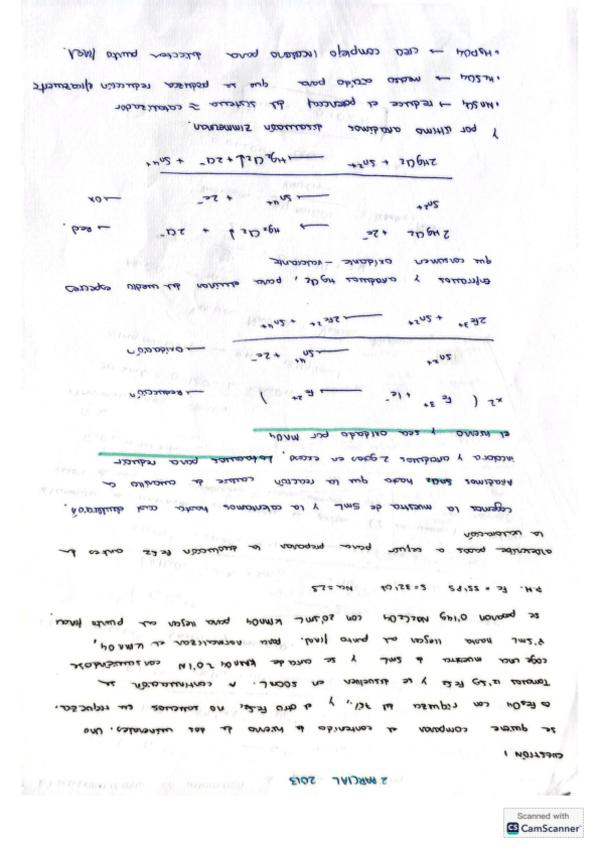 2 PARCIAL 2013
CUESTIÓN 1
se quiere comparar el contenido de hierro de dos minerales. Uno
es Fe3O4 con riqueza del 76%, y el otro FeS2, no sabemos su riqueza.
Tomamos 12'5g FeS2 y se disuelven en 500mL. A continuación se
coge una muestra de 5mL y se carga de KMnO4 0,1N consumiéndose
mL hasta llegar al punto final. Para normalizar el KMnO4,
se pesaron 0,14g Na2C2O4 con 20,5mL KMnO4 para llegar al punto final.
P.M. Fe = 55,85 S = 32,01 Na = 23
a) describe pasos a seguir para preparar la disolución FeS2 antes de
la valoración
Cogemos la muestra de 5mL y la calentamos hasta casi
Añadimos SnCl2 hasta que la reacción cambie de amarillo a
incolora y añadimos 2 gotas en exceso. Lo hacemos para reducir
el hierro y sea oxidado por MnO4
x2 ( Fe 3+ + 1e- → Fe 2+ ) → Reducción
Sn 2+ → Sn 4+ + 2e- → Oxidación
2Fe 3+ + Sn 2+ → 2Fe 2+ + Sn 4+
Enfriamos y añadimos HgCl2, para eliminar del medio especies
que consuman oxidante - valorante
2 HgCl2 + 2e- → Hg2Cl2 ↓ + 2Cl- → Red.
Sn 2+ → Sn 4+ + 2e- → Ox
2HgCl2 + Sn 2+ → Hg2Cl2 ↓ + 2Cl- + Sn 4+
Y por último añadimos disolución Zimmerman.
• MnSO4 → reduce el potencial del sistema ≈ catalizador
• H2SO4 → medio ácido para que se produzca reducción
• H3PO4 → crea complejo incoloro para detectar punto final.
Scanned with
CS CamScanner